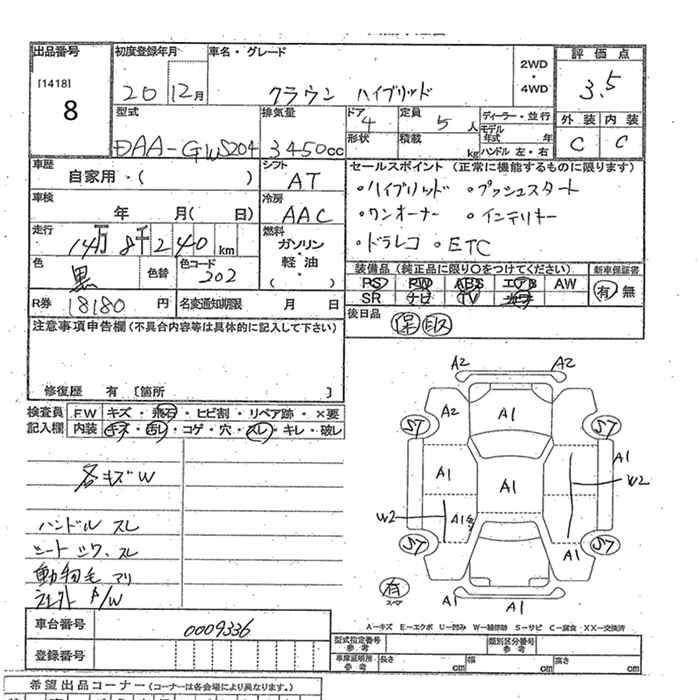 出品番号 初度登録年月 車名・グレード 2WD・4WD 評価点
[1418] 8 20 12月 クラウン ハイブリッド 3.5
型式 排気量 ドア 4 定員 5人 ディーラー・並行 外装 内装
DAA-GWS204 3450cc 形状 積載 kg モデル年式 年 ハンドル 左・右 C C
車歴 シフト セールスポイント (正常に機能するものに限ります)
自家用・( ) AT ・ハイブリッド ・プッシュスタート
車検 冷房 ・ワンオーナー ・インテリキー
年 月( 日) AAC ・ドラレコ ・ETC
走行 14万8千240km 燃料 ガソリン・軽油・( )
色 黒 色替 色コード 202
装備品 (純正品に限り○をつけてください) 新車保証書
PS PW ABS エアB AW 有 無
SR ナビ TV
R券 18180円 名変通知期限 月 日
後日品 保 取
注意事項申告欄(不具合内容等は具体的に記入して下さい)
修復歴 有 [箇所 ]
検査員 FW キズ・飛石・ヒビ割・リペア跡・×要
記入欄 内装 キズ・汚し・コゲ・穴・スレ・キレ・破レ
各キズW
ハンドル スレ
シート シワ、スレ
動物毛 アリ
P/W
A2 A2
A2 A1
ST ST
A1 A1 A1 W2
W2 A1
ST A1 ST
有 スペア A1 A1
A-キズ E-エクボ U-凹み W-補修跡 S-サビ C-腐食 XX-交換済
車台番号 0009336
登録番号
型式指定番号 参考 類別区分番号 参考
車庫証明用 参考 長さ cm 幅 cm 高さ cm
希望出品コーナー (コーナーは各会場により異なります。)